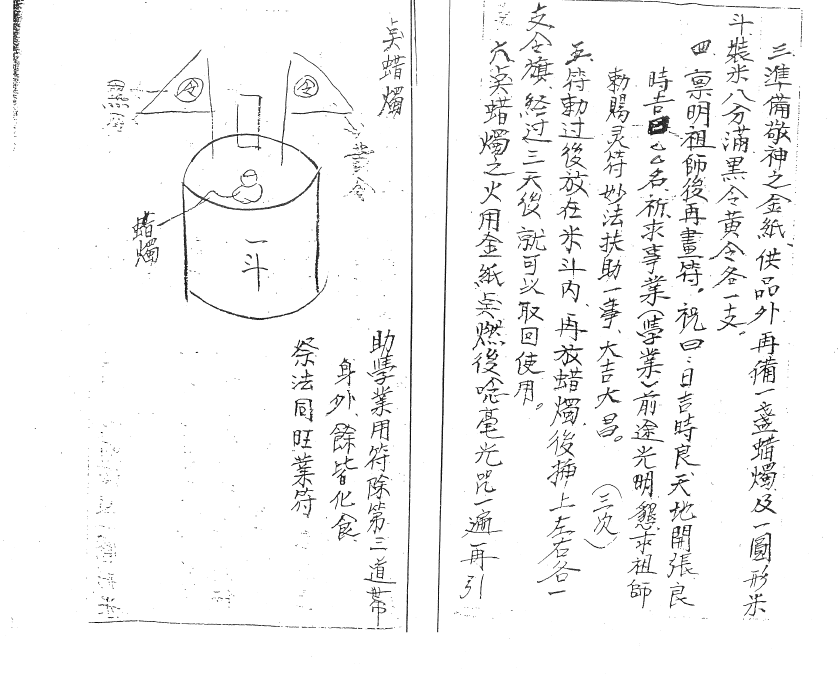 三、準備敬神之金紙、供品外再備一盞蜡燭及一圓形米
斗裝米八分滿黑令黃令各一支。
四、禀明祖師後再畫符。祝曰：日吉時良天地開張良
時吉日△△名祈求事業（學業）前途光明懇求祖師
勅賜灵符妙法扶助一事、大吉大昌。（三次）
五、符勅过後放在米斗內、再放蜡燭、後插上左右各一
支令旗、経过三天後就可以取回使用。
六、奌蜡燭之火用金紙奌燃後唸毫光咒一遍再引
奌蜡燭
令
令
黑令
黃令
蜡燭
一斗
助學業用符除第三道帶
身外、餘皆化食、
祭法同旺業符